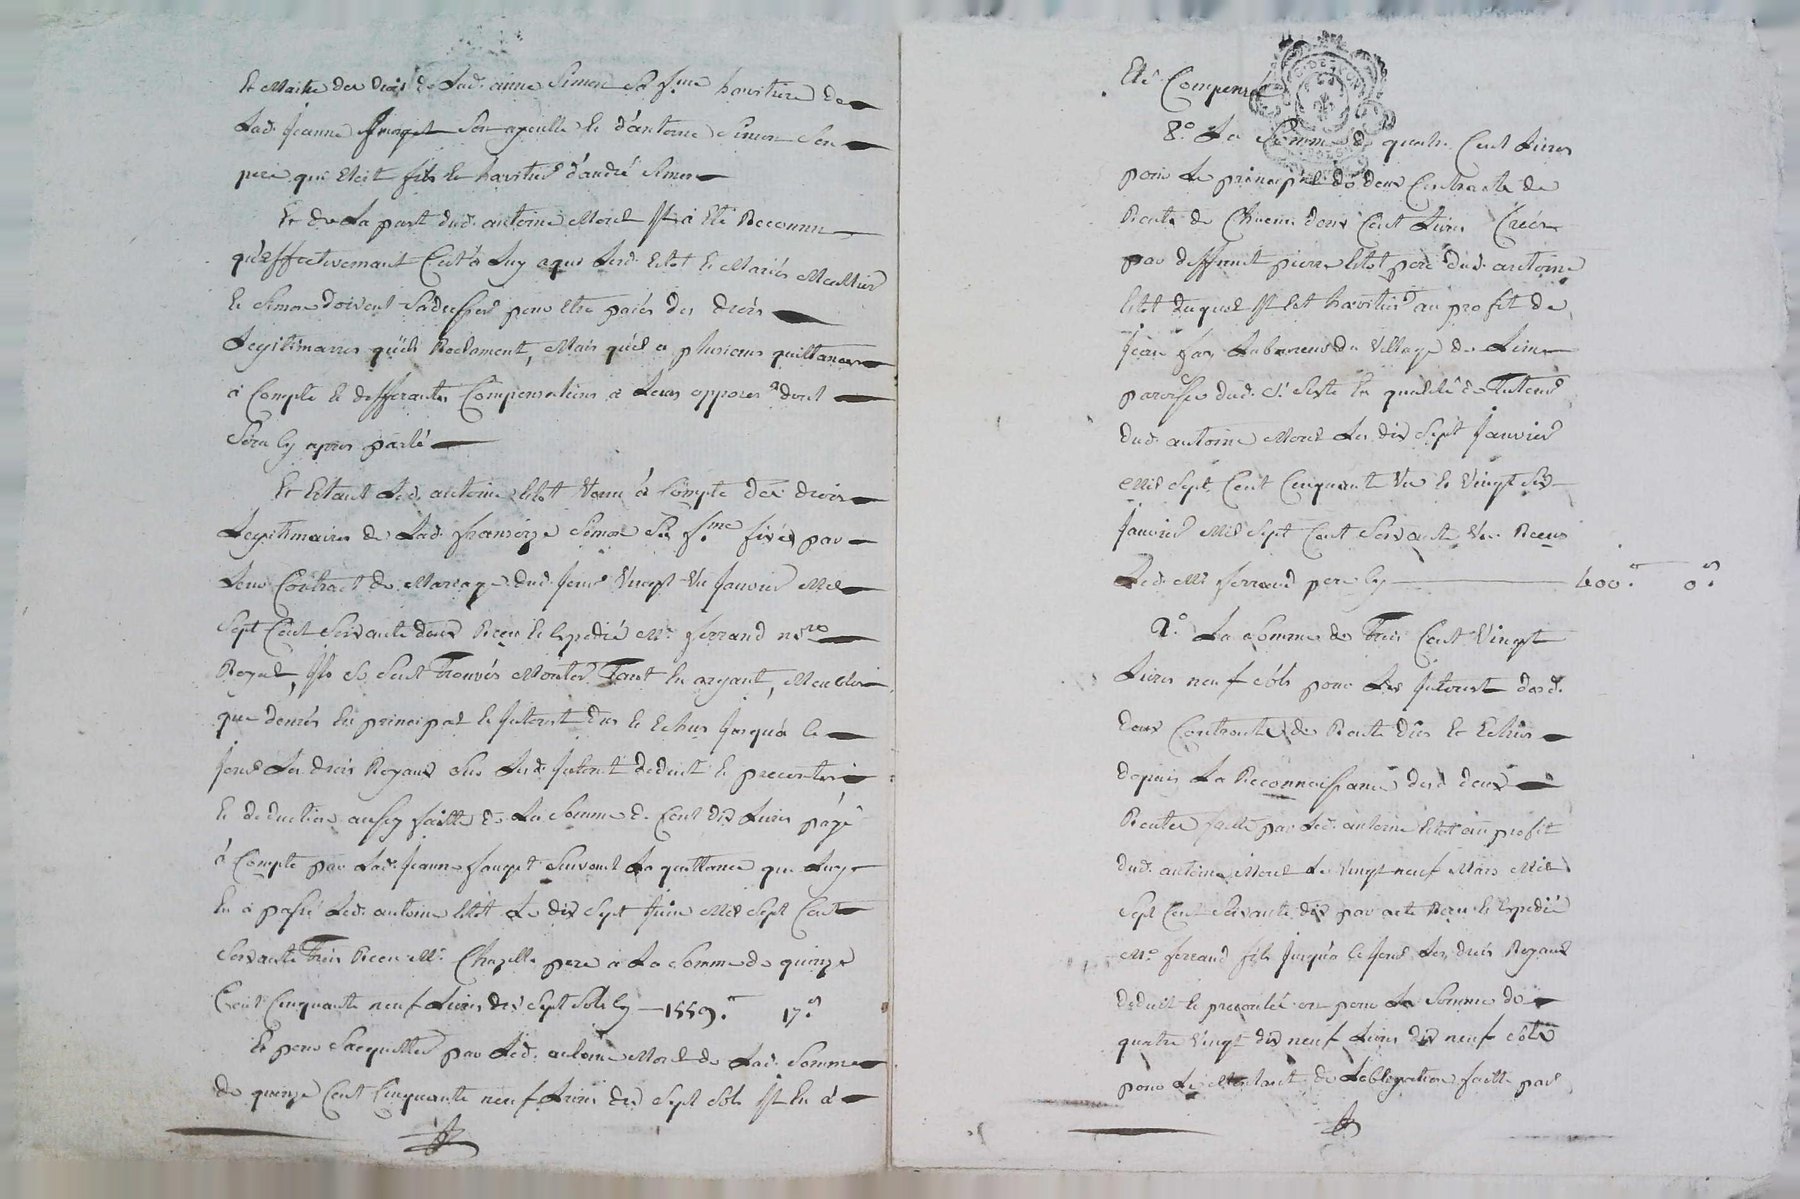 Et Maitre des droits de Lad. anne Simon sa fme heritiere de
Lad. Jeanne fouget son ayeulle et d'antoine Simon son
pere qui etoit fils et heritier d'andré Simon
Et de La part dud. antoine Morel Il a Eté Reconnu
qu'Effectivement C'est à Luy a qui Lesd. litot et Mariés
et Simon doivent S'adresser pour etre paiés des droits
Legitimaires qu'ils Reclament, Mais qu'il a plusieurs quittances
à Compte et differantes Compensations a Leurs opposer dont
Sera Cy apres parlé
Et Etant Led. antoine litot Venu à Compte des droits
Legitimaires de Lad. franceize Simon Sa fme fixés par
Leur Contract de Mariage dud. Jour Vingt Un Janvier Mil
Sept Cent Soixante deux Reçu et Expedié Me. ferrand nre
Royal, Ils Se Sont Trouvés Monter Tant En argent, Meubles
que denrés En principal et Interest dus et Echus Jusqu'à Ce
Jour Les droits Royaux Sur Lesd. Interest deduit
et deduction aussy faitte de La Somme de Cent dix Livres payé
à Compte par Lad. Jeanne fouget Suivant La quittance que Luy
En à passé Led. antoine litot Le dix Sept Juin Mil Sept Cent
Soixante Trois Recu Me. Chazelle pere a La Somme de quinze
Cent Cinquante neuf Livres dix Sept Sols Cy — 1559.ᵗᵗ 17.ˢ
Et pour S'acquitter par Led. antoine Morel de Lad. Somme
de quinze Cent Cinquante neuf Livres dix Sept Sols Il En à
Eté Compensé
8.° La Somme de quatre Cent Livres
pour Le principal de deux Contracts de
Rente de Chacun deux Cent Livres Créés
par deffunt pierre litot pere dud. antoine
litot duquel Il Est heritier au profit de
Jean Laboureur du Village de
paroisse dud. St. En qualité de Tuteur
dud. antoine Morel Les dix Sept Janvier
Mil Sept Cent Cinquante Un et Vingt Six
Janvier Mil Sept Cent Soixante Un Recus
Led. Me. ferrand pere Cy — 400.ᵗᵗ 0.ˢ
9.° La Somme de Trois Cent Vingt
Livres neuf Sols pour Les Interest desd.
deux Contracts de Rente dus et Echus
depuis La Reconnoissance desd. deux
Rentes faitte par Led. antoine litot au profit
dud. antoine Morel Le Vingt neuf Mars Mil
Sept Cent Soixante dix par acte Recu et Expedié
Me. ferrand fils Jusqu'à Ce Jour Les droits Royaux
deduit pour La Somme de
quatre Vingt dix neuf Livres dix neuf Sols
pour Le Montant de L'obligation faitte par